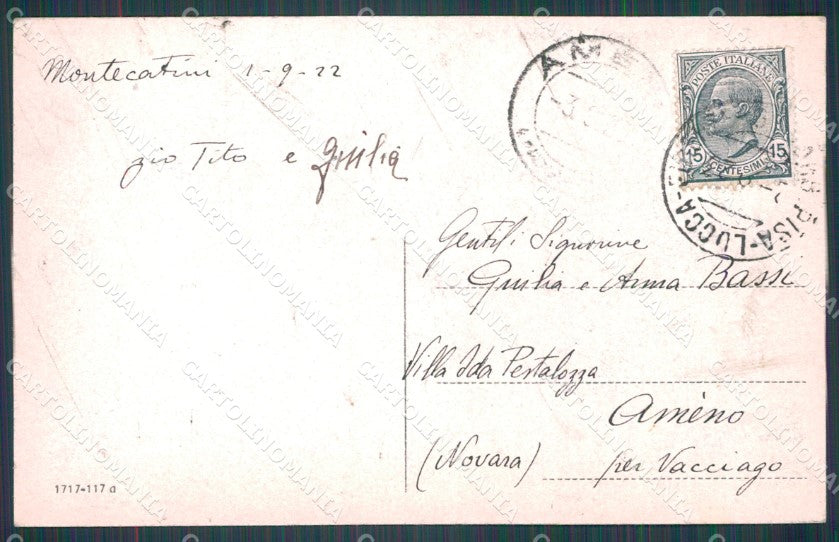 Montecatini 1-9-22
zio Tito e Giulia
POSTE ITALIANE
15 CENTESIMI 15
PISA-LUCCA-
Gentili Signorine
Giulia e Anna Bassi
Villa Ida Pestalozza
Amèno
(Novara) per Vacciago
1717-117 a
CARTOLINOMANIA